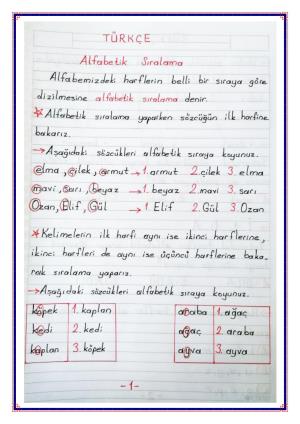 TÜRKÇE
Alfabetik Sıralama
Alfabemizdeki harflerin belli bir sıraya göre
dizilmesine alfabetik sıralama denir.
* Alfabetik sıralama yaparken sözcüğün ilk harfine
bakarız.
→ Aşağıdaki sözcükleri alfabetik sıraya koyunuz.
elma, çilek, armut → 1. armut 2. çilek 3. elma
mavi, sarı, beyaz → 1. beyaz 2. mavi 3. sarı
Ozan, Elif, Gül → 1. Elif 2. Gül 3. Ozan
* Kelimelerin ilk harfi aynı ise ikinci harflerine,
ikinci harfleri de aynı ise üçüncü harflerine baka-
rak sıralama yaparız.
→ Aşağıdaki sözcükleri alfabetik sıraya koyunuz.
köpek 1. kaplan araba 1. ağaç
kedi 2. kedi ağaç 2. araba
kaplan 3. köpek ayva 3. ayva
-1-